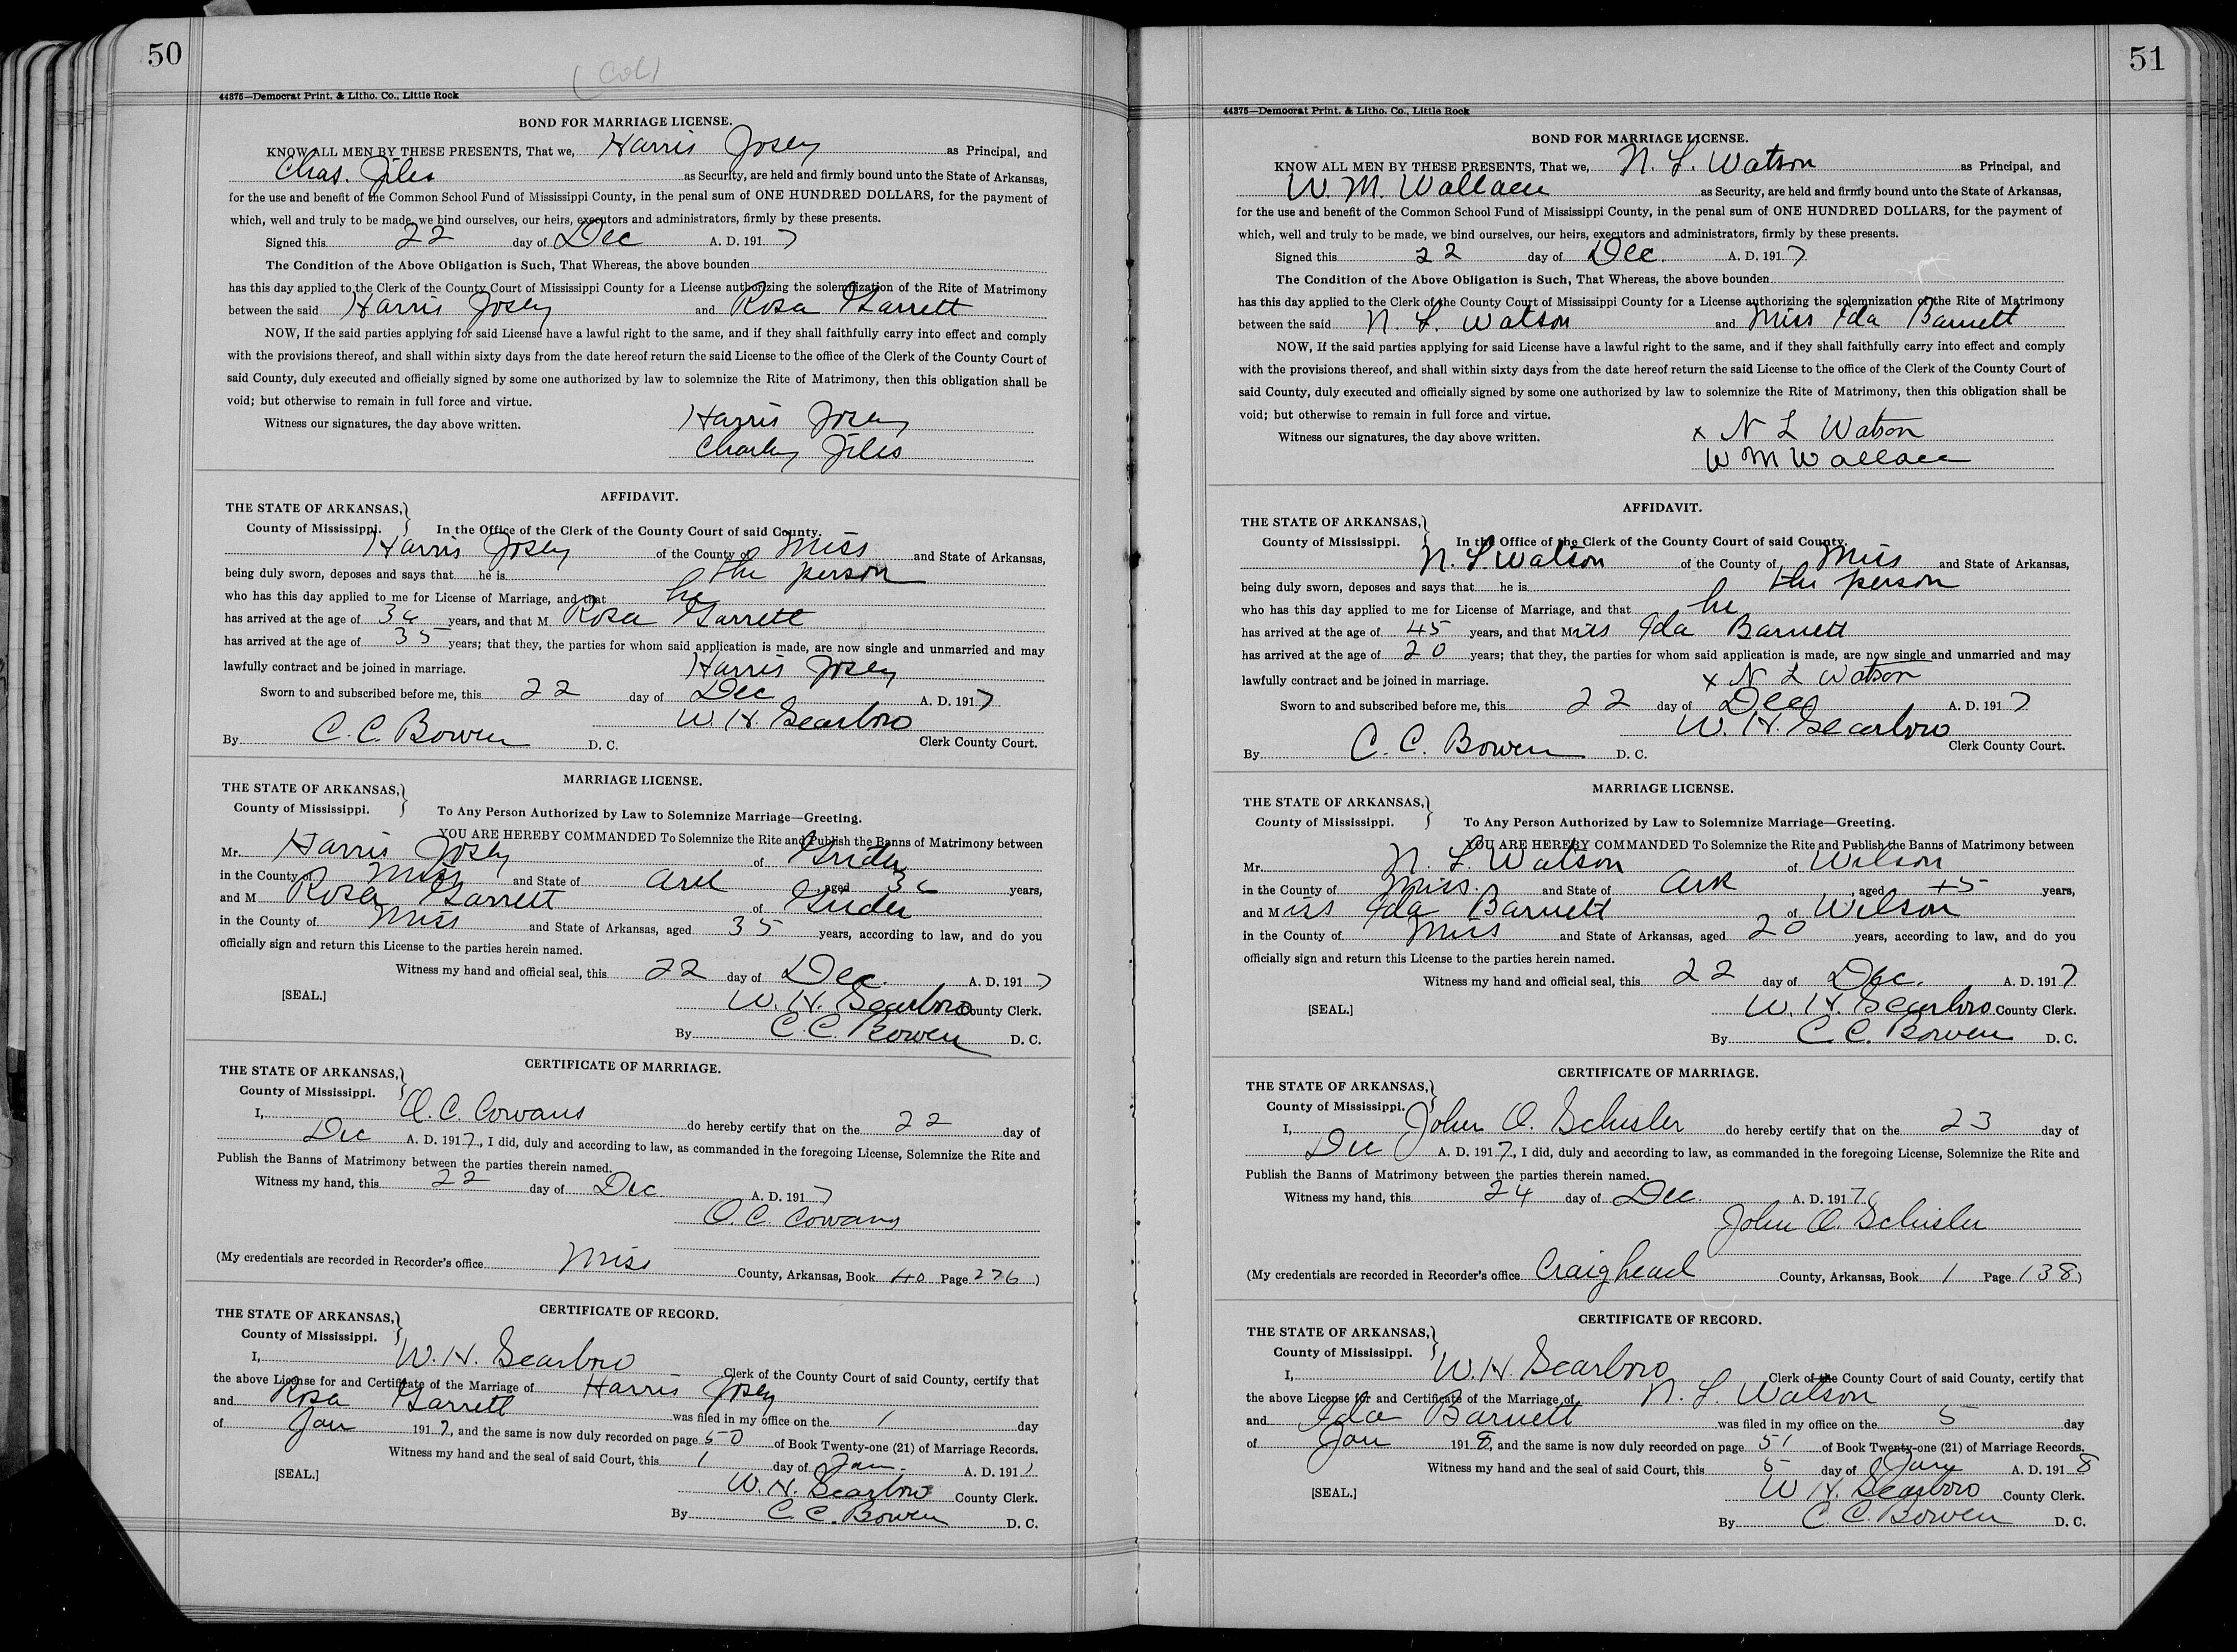 50
(Col)
44375—Democrat Print. & Litho. Co., Little Rock
BOND FOR MARRIAGE LICENSE.
KNOW ALL MEN BY THESE PRESENTS, That we, Harris Josey as Principal, and
Chas. Jiles as Security, are held and firmly bound unto the State of Arkansas,
for the use and benefit of the Common School Fund of Mississippi County, in the penal sum of ONE HUNDRED DOLLARS, for the payment of
which, well and truly to be made, we bind ourselves, our heirs, executors and administrators, firmly by these presents.
Signed this 22 day of Dec A. D. 1917
The Condition of the Above Obligation is Such, That Whereas, the above bounden
has this day applied to the Clerk of the County Court of Mississippi County for a License authorizing the solemnization of the Rite of Matrimony
between the said Harris Josey and Rosa Garrett
NOW, If the said parties applying for said License have a lawful right to the same, and if they shall faithfully carry into effect and comply
with the provisions thereof, and shall within sixty days from the date hereof return the said License to the office of the Clerk of the County Court of
said County, duly executed and officially signed by some one authorized by law to solemnize the Rite of Matrimony, then this obligation shall be
void; but otherwise to remain in full force and virtue.
Witness our signatures, the day above written. Harris Josey
Charley Jiles
AFFIDAVIT.
THE STATE OF ARKANSAS,
County of Mississippi. In the Office of the Clerk of the County Court of said County.
Harris Josey of the County of Miss and State of Arkansas,
being duly sworn, deposes and says that he is the person
who has this day applied to me for License of Marriage, and that he
has arrived at the age of 36 years, and that M Rosa Garrett
has arrived at the age of 35 years; that they, the parties for whom said application is made, are now single and unmarried and may
lawfully contract and be joined in marriage. Harris Josey
Sworn to and subscribed before me, this 22 day of Dec A. D. 1917
W. H. Scarboro
By C. C. Bowen D. C. Clerk County Court.
MARRIAGE LICENSE.
THE STATE OF ARKANSAS,
County of Mississippi. To Any Person Authorized by Law to Solemnize Marriage—Greeting.
YOU ARE HEREBY COMMANDED To Solemnize the Rite and Publish the Banns of Matrimony between
Mr. Harris Josey of Grider
in the County of Miss and State of Ark aged 36 years,
and M Rosa Garrett of Grider
in the County of Miss and State of Arkansas, aged 35 years, according to law, and do you
officially sign and return this License to the parties herein named.
Witness my hand and official seal, this 22 day of Dec. A. D. 1917
[SEAL.] W. H. Scarboro County Clerk.
By C. C. Bowen D. C.
CERTIFICATE OF MARRIAGE.
THE STATE OF ARKANSAS,
County of Mississippi.
I, O. C. Cowans do hereby certify that on the 22 day of
Dec A. D. 1917, I did, duly and according to law, as commanded in the foregoing License, Solemnize the Rite and
Publish the Banns of Matrimony between the parties therein named.
Witness my hand, this 22 day of Dec. A. D. 1917
O. C. Cowans
(My credentials are recorded in Recorder's office Miss County, Arkansas, Book 40 Page 276)
CERTIFICATE OF RECORD.
THE STATE OF ARKANSAS,
County of Mississippi.
I, W. H. Scarboro Clerk of the County Court of said County, certify that
the above License for and Certificate of the Marriage of Harris Josey
and Rosa Garrett was filed in my office on the 1 day
of Jan 1917, and the same is now duly recorded on page 50 of Book Twenty-one (21) of Marriage Records.
Witness my hand and the seal of said Court, this 1 day of Jan. A. D. 191
[SEAL.] W. H. Scarboro County Clerk.
By C. C. Bowen D. C.
51
44375—Democrat Print. & Litho. Co., Little Rock
BOND FOR MARRIAGE LICENSE.
KNOW ALL MEN BY THESE PRESENTS, That we, N. L. Watson as Principal, and
W. M. Wallace as Security, are held and firmly bound unto the State of Arkansas,
for the use and benefit of the Common School Fund of Mississippi County, in the penal sum of ONE HUNDRED DOLLARS, for the payment of
which, well and truly to be made, we bind ourselves, our heirs, executors and administrators, firmly by these presents.
Signed this 22 day of Dec. A. D. 1917.
The Condition of the Above Obligation is Such, That Whereas, the above bounden
has this day applied to the Clerk of the County Court of Mississippi County for a License authorizing the solemnization of the Rite of Matrimony
between the said N. L. Watson and Miss Ida Barnett
NOW, If the said parties applying for said License have a lawful right to the same, and if they shall faithfully carry into effect and comply
with the provisions thereof, and shall within sixty days from the date hereof return the said License to the office of the Clerk of the County Court of
said County, duly executed and officially signed by some one authorized by law to solemnize the Rite of Matrimony, then this obligation shall be
void; but otherwise to remain in full force and virtue.
Witness our signatures, the day above written. x N L Watson
W M Wallace
AFFIDAVIT.
THE STATE OF ARKANSAS,
County of Mississippi. In the Office of the Clerk of the County Court of said County.
N. L. Watson of the County of Miss and State of Arkansas,
being duly sworn, deposes and says that he is the person
who has this day applied to me for License of Marriage, and that he
has arrived at the age of 45 years, and that Miss Ida Barnett
has arrived at the age of 20 years; that they, the parties for whom said application is made, are now single and unmarried and may
lawfully contract and be joined in marriage. x N L Watson
Sworn to and subscribed before me, this 22 day of Dec A. D. 1917
W. H. Scarboro
By C. C. Bowen D. C. Clerk County Court.
MARRIAGE LICENSE.
THE STATE OF ARKANSAS,
County of Mississippi. To Any Person Authorized by Law to Solemnize Marriage—Greeting.
YOU ARE HEREBY COMMANDED To Solemnize the Rite and Publish the Banns of Matrimony between
Mr. N. L. Watson of Wilson
in the County of Miss. and State of Ark, aged 45 years,
and Miss Ida Barnett of Wilson
in the County of Miss and State of Arkansas, aged 20 years, according to law, and do you
officially sign and return this License to the parties herein named.
Witness my hand and official seal, this 22 day of Dec. A. D. 1917
[SEAL.] W. H. Scarboro County Clerk.
By C. C. Bowen D. C.
CERTIFICATE OF MARRIAGE.
THE STATE OF ARKANSAS,
County of Mississippi.
I, John O. Schisler do hereby certify that on the 23 day of
Dec A. D. 1917, I did, duly and according to law, as commanded in the foregoing License, Solemnize the Rite and
Publish the Banns of Matrimony between the parties therein named.
Witness my hand, this 24 day of Dec. A. D. 1917
John O. Schisler
(My credentials are recorded in Recorder's office Craighead County, Arkansas, Book 1 Page 138)
CERTIFICATE OF RECORD.
THE STATE OF ARKANSAS,
County of Mississippi.
I, W. H. Scarboro Clerk of the County Court of said County, certify that
the above License for and Certificate of the Marriage of N. L. Watson
and Ida Barnett was filed in my office on the 5 day
of Jan 1918, and the same is now duly recorded on page 51 of Book Twenty-one (21) of Marriage Records.
Witness my hand and the seal of said Court, this 5 day of Jany A. D. 1918
[SEAL.] W H. Scarboro County Clerk.
By C. C. Bowen D. C.